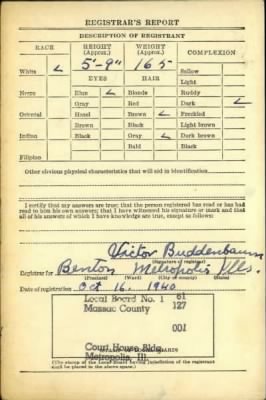 REGISTRAR'S REPORT
DESCRIPTION OF REGISTRANT
RACE HEIGHT (Approx.) WEIGHT (Approx.) COMPLEXION
White ✓ 5'-9" 165 Sallow
EYES HAIR Light
Negro Blue ✓ Blonde Ruddy
Gray Red Dark ✓
Oriental Hazel Brown ✓ Freckled
Brown Black Light brown
Indian Black Gray ✓ Dark brown
Bald Black
Filipino
Other obvious physical characteristics that will aid in identification
I certify that my answers are true; that the person registered has read or has had
read to him his own answers; that I have witnessed his signature or mark and that
all of his answers of which I have knowledge are true, except as follows:
Victor Buddenbaum
(Signature of registrar)
Registrar for Benton Metropolis Ills.
(Precinct) (Ward) (City or county) (State)
Date of registration Oct 16, 1940
Local Board No. 1 61
Massac County 127
001
Court House Bldg.
Metropolis, Ill.
(The stamp of the Local Board having jurisdiction of the registrant
shall be placed in the above space)